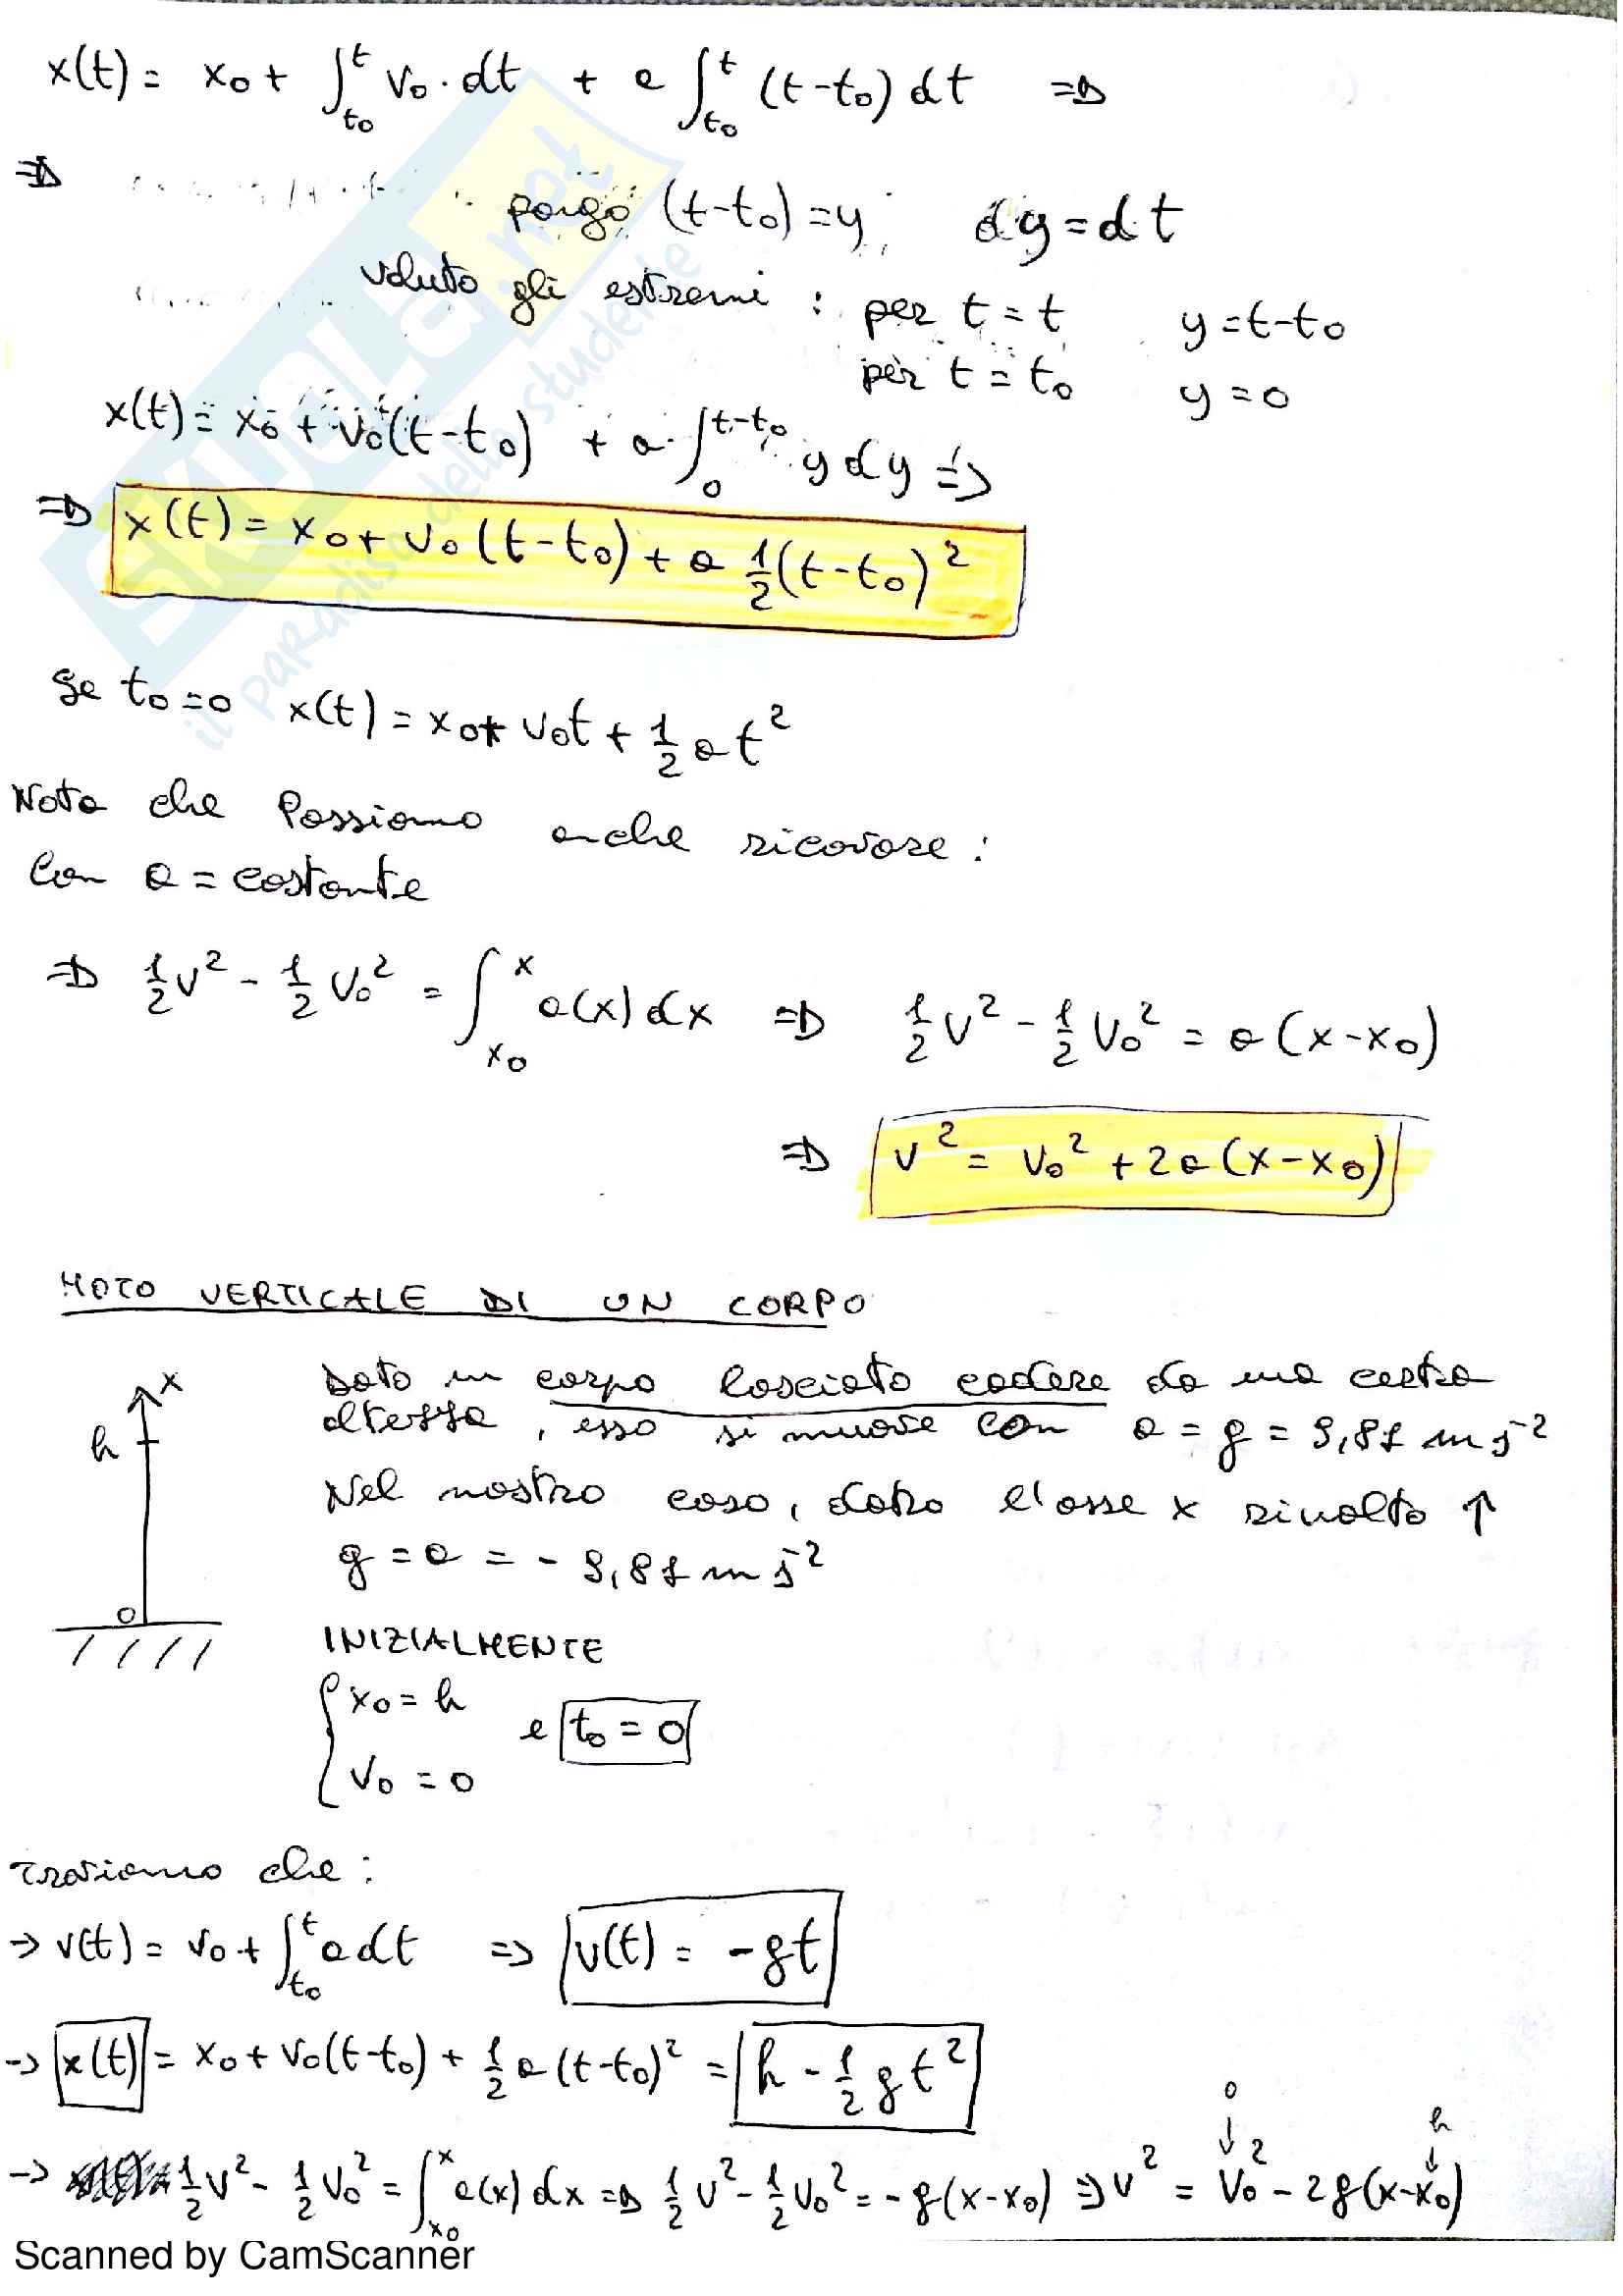 x(t) = x₀ + ∫ₜ₀ᵗ v₀ · dt + a ∫ₜ₀ᵗ (t-t₀) dt ⇒
⇒ pongo (t-t₀) = y, dy = dt
valuto gli estremi : per t = t y = t-t₀
per t = t₀ y = 0
x(t) = x₀ + v₀(t-t₀) + a · ∫₀ᵗ⁻ᵗ⁰ y dy ⇒
⇒ x(t) = x₀ + v₀(t-t₀) + a ½(t-t₀)²
Se t₀ = 0 x(t) = x₀ + v₀t + ½ a t²
Nota che Possiamo anche ricavare :
Con a = costante
⇒ ½v² - ½v₀² = ∫ₓ₀ˣ a(x) dx ⇒ ½v² - ½v₀² = a(x-x₀)
⇒ v² = v₀² + 2a(x-x₀)
MOTO VERTICALE DI UN CORPO
x
h
0
Dato un corpo lasciato cadere da una certa
altezza, esso si muove con a = g = 9,81 m s⁻²
Nel nostro caso, dato l'asse x rivolto ↑
g = a = - 9,81 m s⁻²
INIZIALMENTE
{ x₀ = h
e t₀ = 0
v₀ = 0
Troviamo che :
→ v(t) = v₀ + ∫ₜ₀ᵗ a dt ⇒ v(t) = -gt
→ x(t) = x₀ + v₀(t-t₀) + ½ a (t-t₀)² = h - ½ g t²
0 h
↓ ↓
→ ½v² - ½v₀² = ∫ₓ₀ˣ a(x) dx ⇒ ½v² - ½v₀² = -g(x-x₀) ⇒ v² = v₀² - 2g(x-x₀)
Scanned by CamScanner
SKUOLA.net
il paradiso dello studente